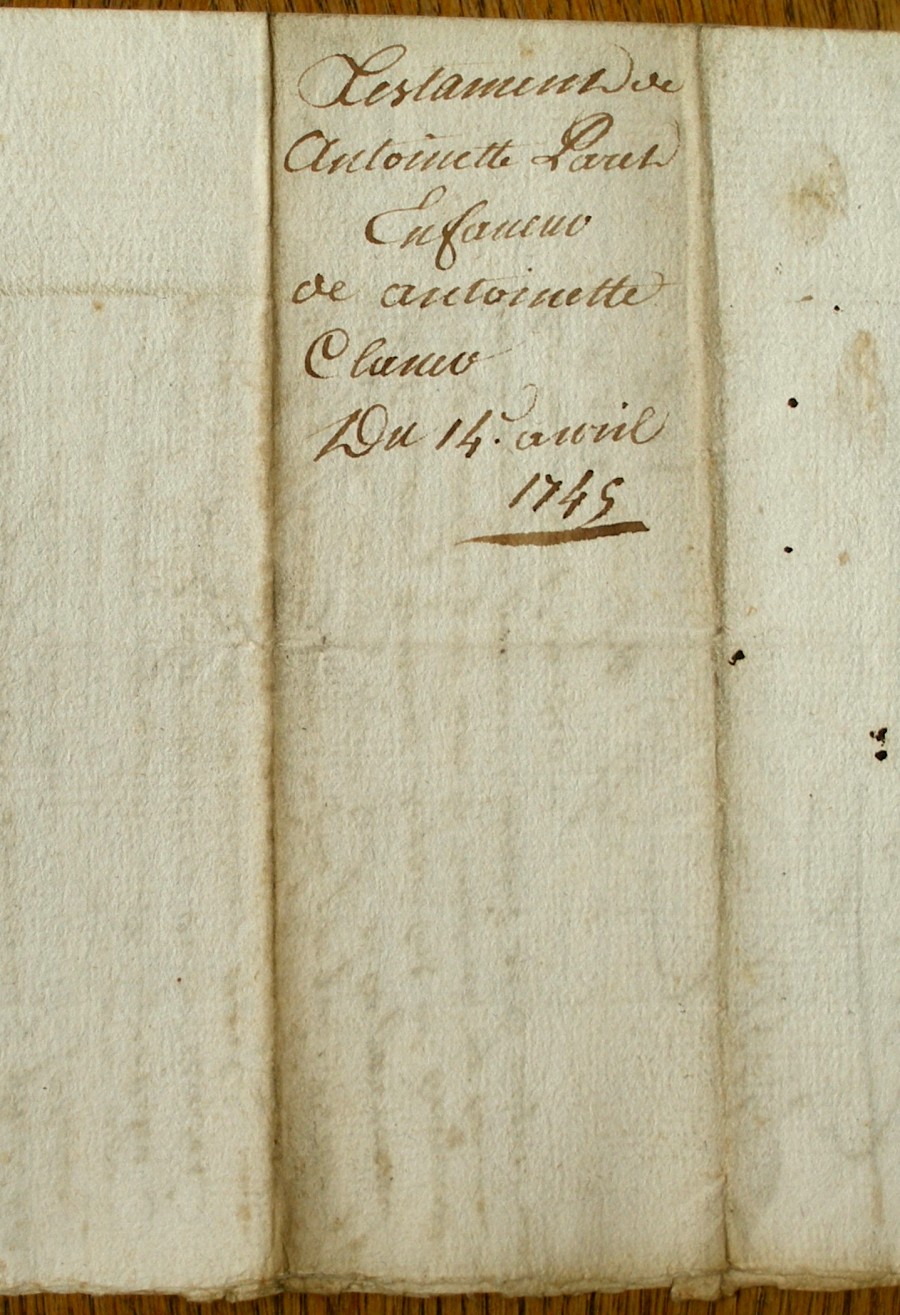 Testament de
Antoinette Paret
En faveur
de antoinette
Claveo
Du 14e. avril
1745